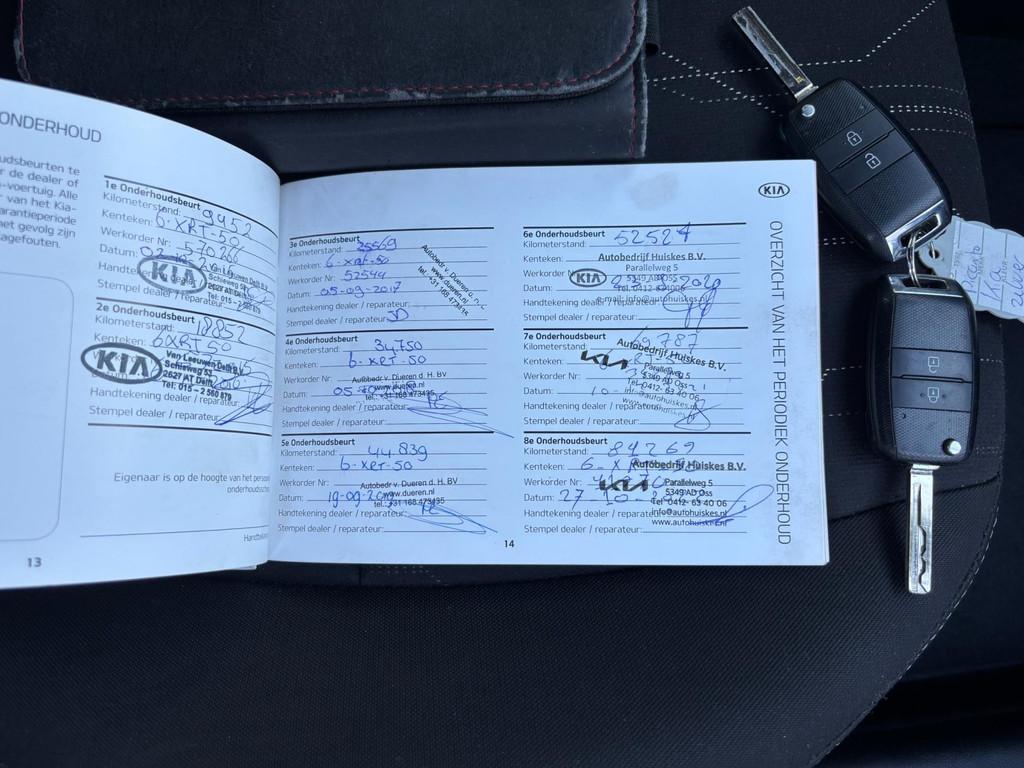 ONDERHOUD
udsbeurten te
r de dealer of
-voertuig. Alle
van het Kia-
arantieperiode
net gevolg zijn
agefouten.
1e Onderhoudsbeurt
Kilometerstand: 9952
Kenteken: 6-XRT-50
Werkorder Nr:
Datum:
KIA
Van Leeuwen Delft B.V.
Schieweg 53
2627 AT Delft
Tel: 015 - 2 560 879
Stempel dealer / reparateur:
2e Onderhoudsbeurt
Kilometerstand: 18852
Kenteken: 6XRT50
KIA
Van Leeuwen Delft B.V.
Schieweg 53
2627 AT Delft
Tel: 015 - 2 560 879
Handtekening dealer / reparateur:
Stempel dealer / reparateur:
Eigenaar is op de hoogte van het
onderhoudssch
13
3e Onderhoudsbeurt
Kilometerstand: 25569
Kenteken: 6-XRT-50
Werkorder Nr: 52544
Datum: 05-09-2017
Handtekening dealer / reparateur:
Stempel dealer / reparateur:
Autobedr v. Dueren d. H. BV
www.dueren.nl
tel.: +31 168 473435
4e Onderhoudsbeurt
Kilometerstand: 34,750
Kenteken: 6-XRT-50
Werkorder Nr:
Datum:
Autobedr v. Dueren d. H. BV
www.dueren.nl
tel.: +31 168 473435
Handtekening dealer / reparateur:
Stempel dealer / reparateur:
5e Onderhoudsbeurt
Kilometerstand: 44.839
Kenteken: 6-XRT-50
Werkorder Nr:
Datum: 19-09-2019
Autobedr v. Dueren d. H. BV
www.dueren.nl
tel.: +31 168 473435
Handtekening dealer / reparateur:
Stempel dealer / reparateur:
6e Onderhoudsbeurt
Kilometerstand: 52527
Kenteken:
Werkorder
Datum:
KIA
Autobedrijf Huiskes B.V.
Parallelweg 5
5349 AD Oss
Tel. 0412-634006
e-mail: info@autohuiskes.nl
Handtekening dealer / reparateur:
Stempel dealer / reparateur:
7e Onderhoudsbeurt
Kilometerstand:
Kenteken:
Werkorder Nr:
Datum:
KIA
Autobedrijf Huiskes B.V.
Parallelweg 5
5349 AD Oss
Handtekening dealer / reparateur:
Stempel dealer / reparateur:
8e Onderhoudsbeurt
Kilometerstand: 81269
Kenteken: 6-XRT-50
Werkorder Nr:
Datum: 27
KIA
Autobedrijf Huiskes B.V.
Parallelweg 5
5349 AD Oss
Tel 0412- 63 40 06
info@autohuiskes.nl
www.autohuiskes.nl
Handtekening dealer / reparateur:
Stempel dealer / reparateur:
14
KIA
OVERZICHT VAN HET PERIODIEK ONDERHOUD
Kia
zilver